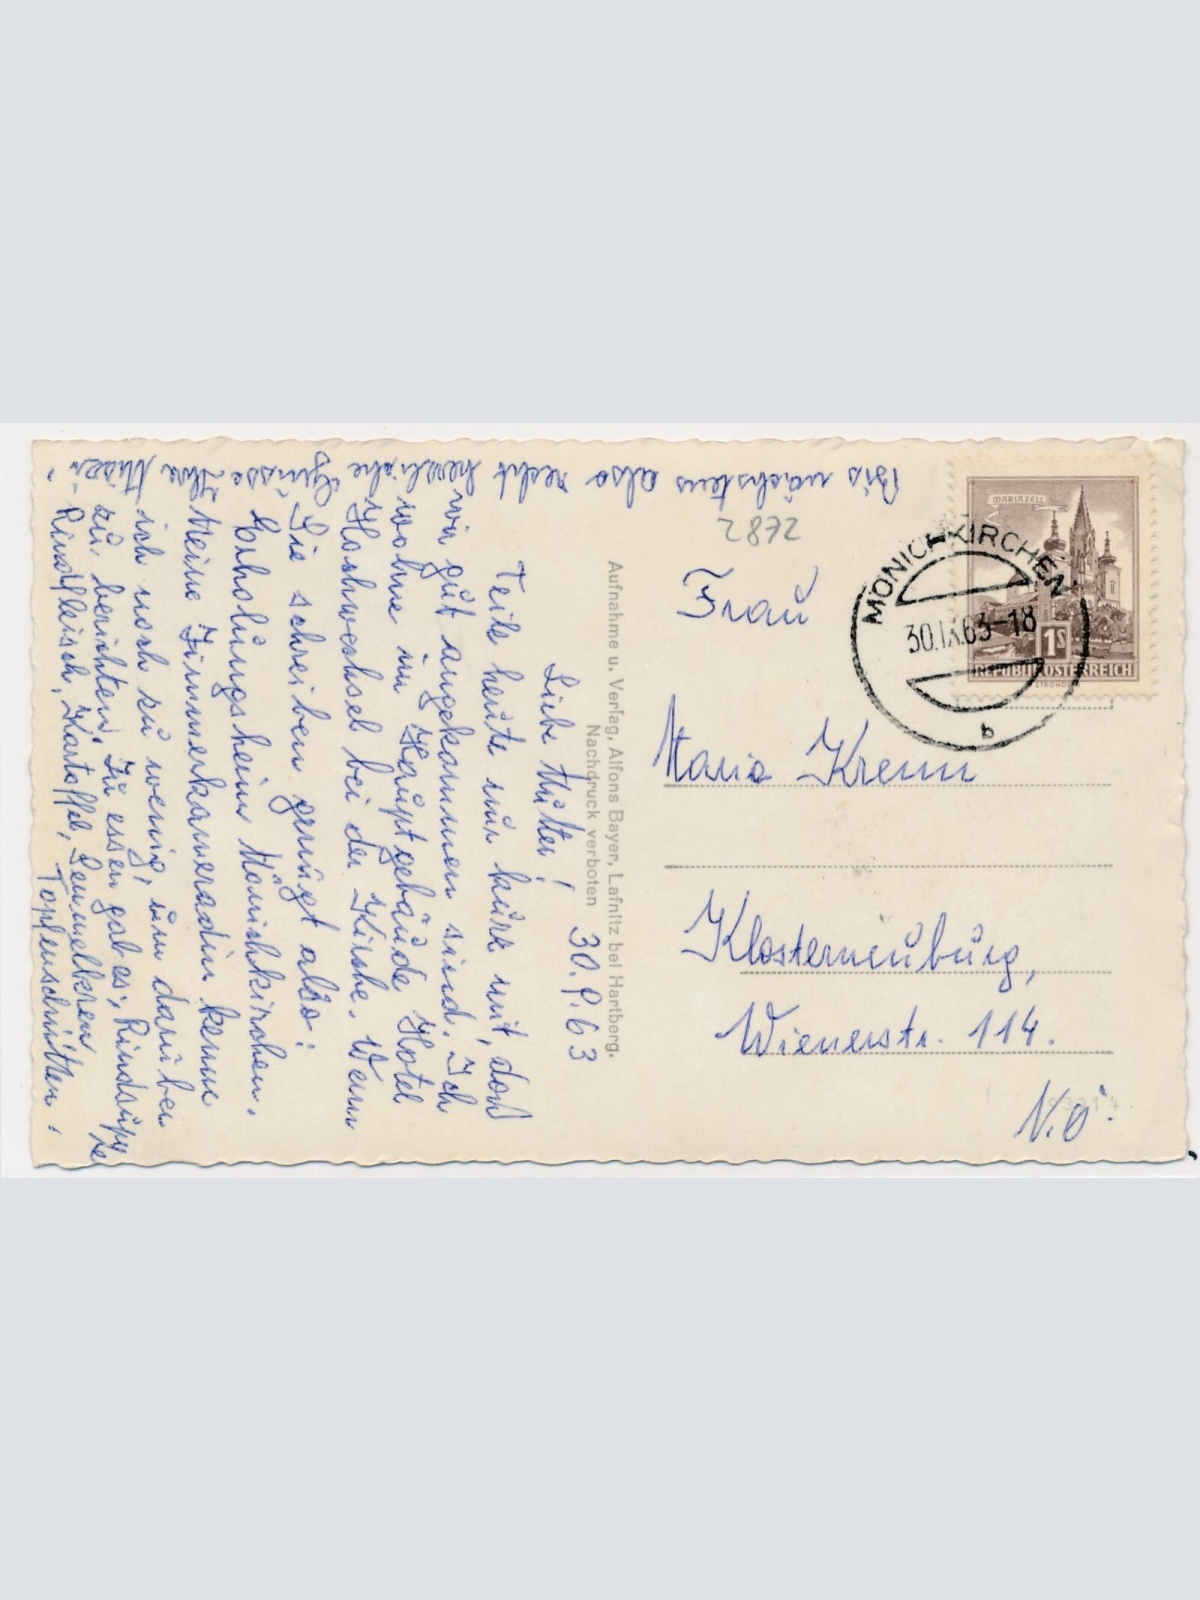 30.9.63
Liebe Mutter!
Teile heute nur kurz mit, daß
wir gut angekommen sind. Ich
wohne im Hauptgebäude Hotel
Hochwechsel bei der Kirche. Wenn
Sie schreiben genügt also:
Erholungsheim Mönichkirchen.
Meine Zimmerkameradin kenne
ich noch zu wenig, um darüber
zu berichten. Zu essen gab es: Rindsuppe
Rindfleisch, Kartoffel, Semmelkren
Topfenschnitten!
Bis nächstens also recht herzliche Grüsse Ihre
Aufnahme u. Verlag, Alfons Bayer, Lafnitz bei Hartberg.
Nachdruck verboten
2872
MARIAZELL
1S
REPUBLIK ÖSTERREICH
MÖNICHKIRCHEN
30.IX.63-18
b
Frau
Maria Krenn
Klosterneuburg,
Wienerstr. 114.
N.Ö.